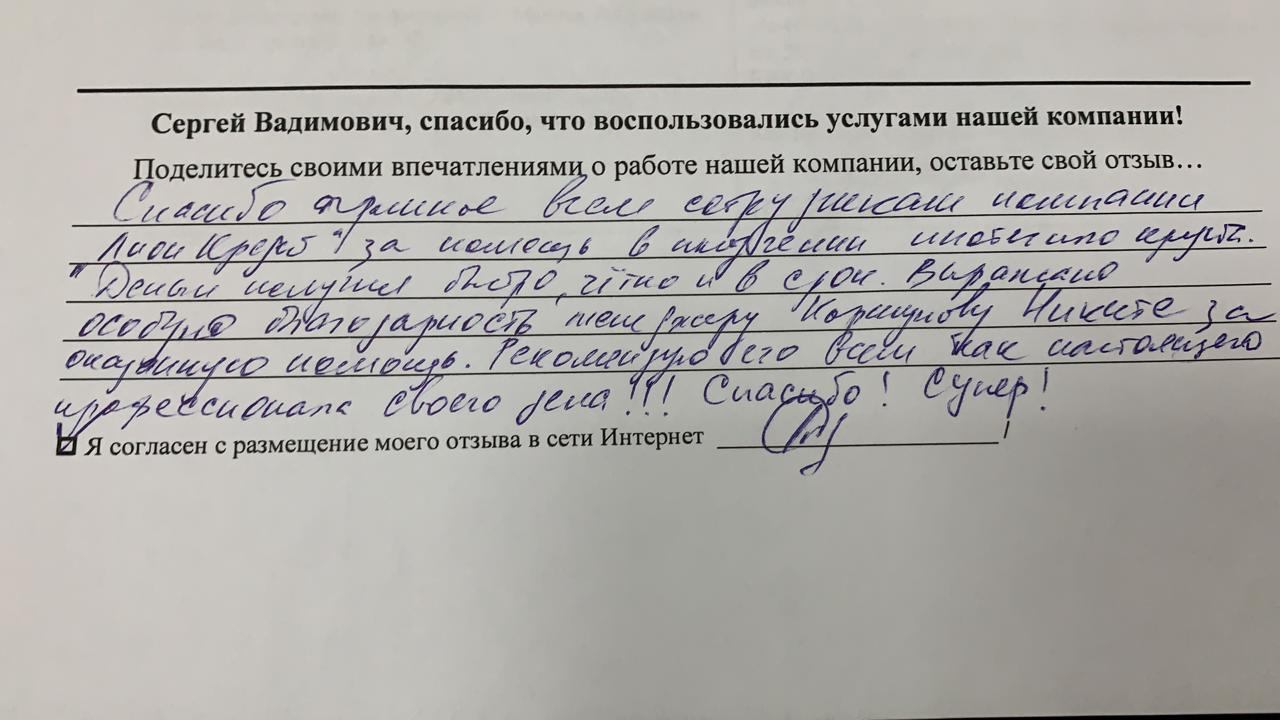 Сергей Вадимович, спасибо, что воспользовались услугами нашей компании!
Поделитесь своими впечатлениями о работе нашей компании, оставьте свой отзыв…
Спасибо огромное всем сотрудникам компании
"Лион Кредит" за помощь в получении ипотечного кредита.
Деньги получил быстро, чётко и в срок. Выражаю
особую благодарность менеджеру Коршунову Никите за
оказанную помощь. Рекомендую его всем как настоящего
профессионала своего дела!!! Спасибо! Супер!
Я согласен с размещение моего отзыва в сети Интернет